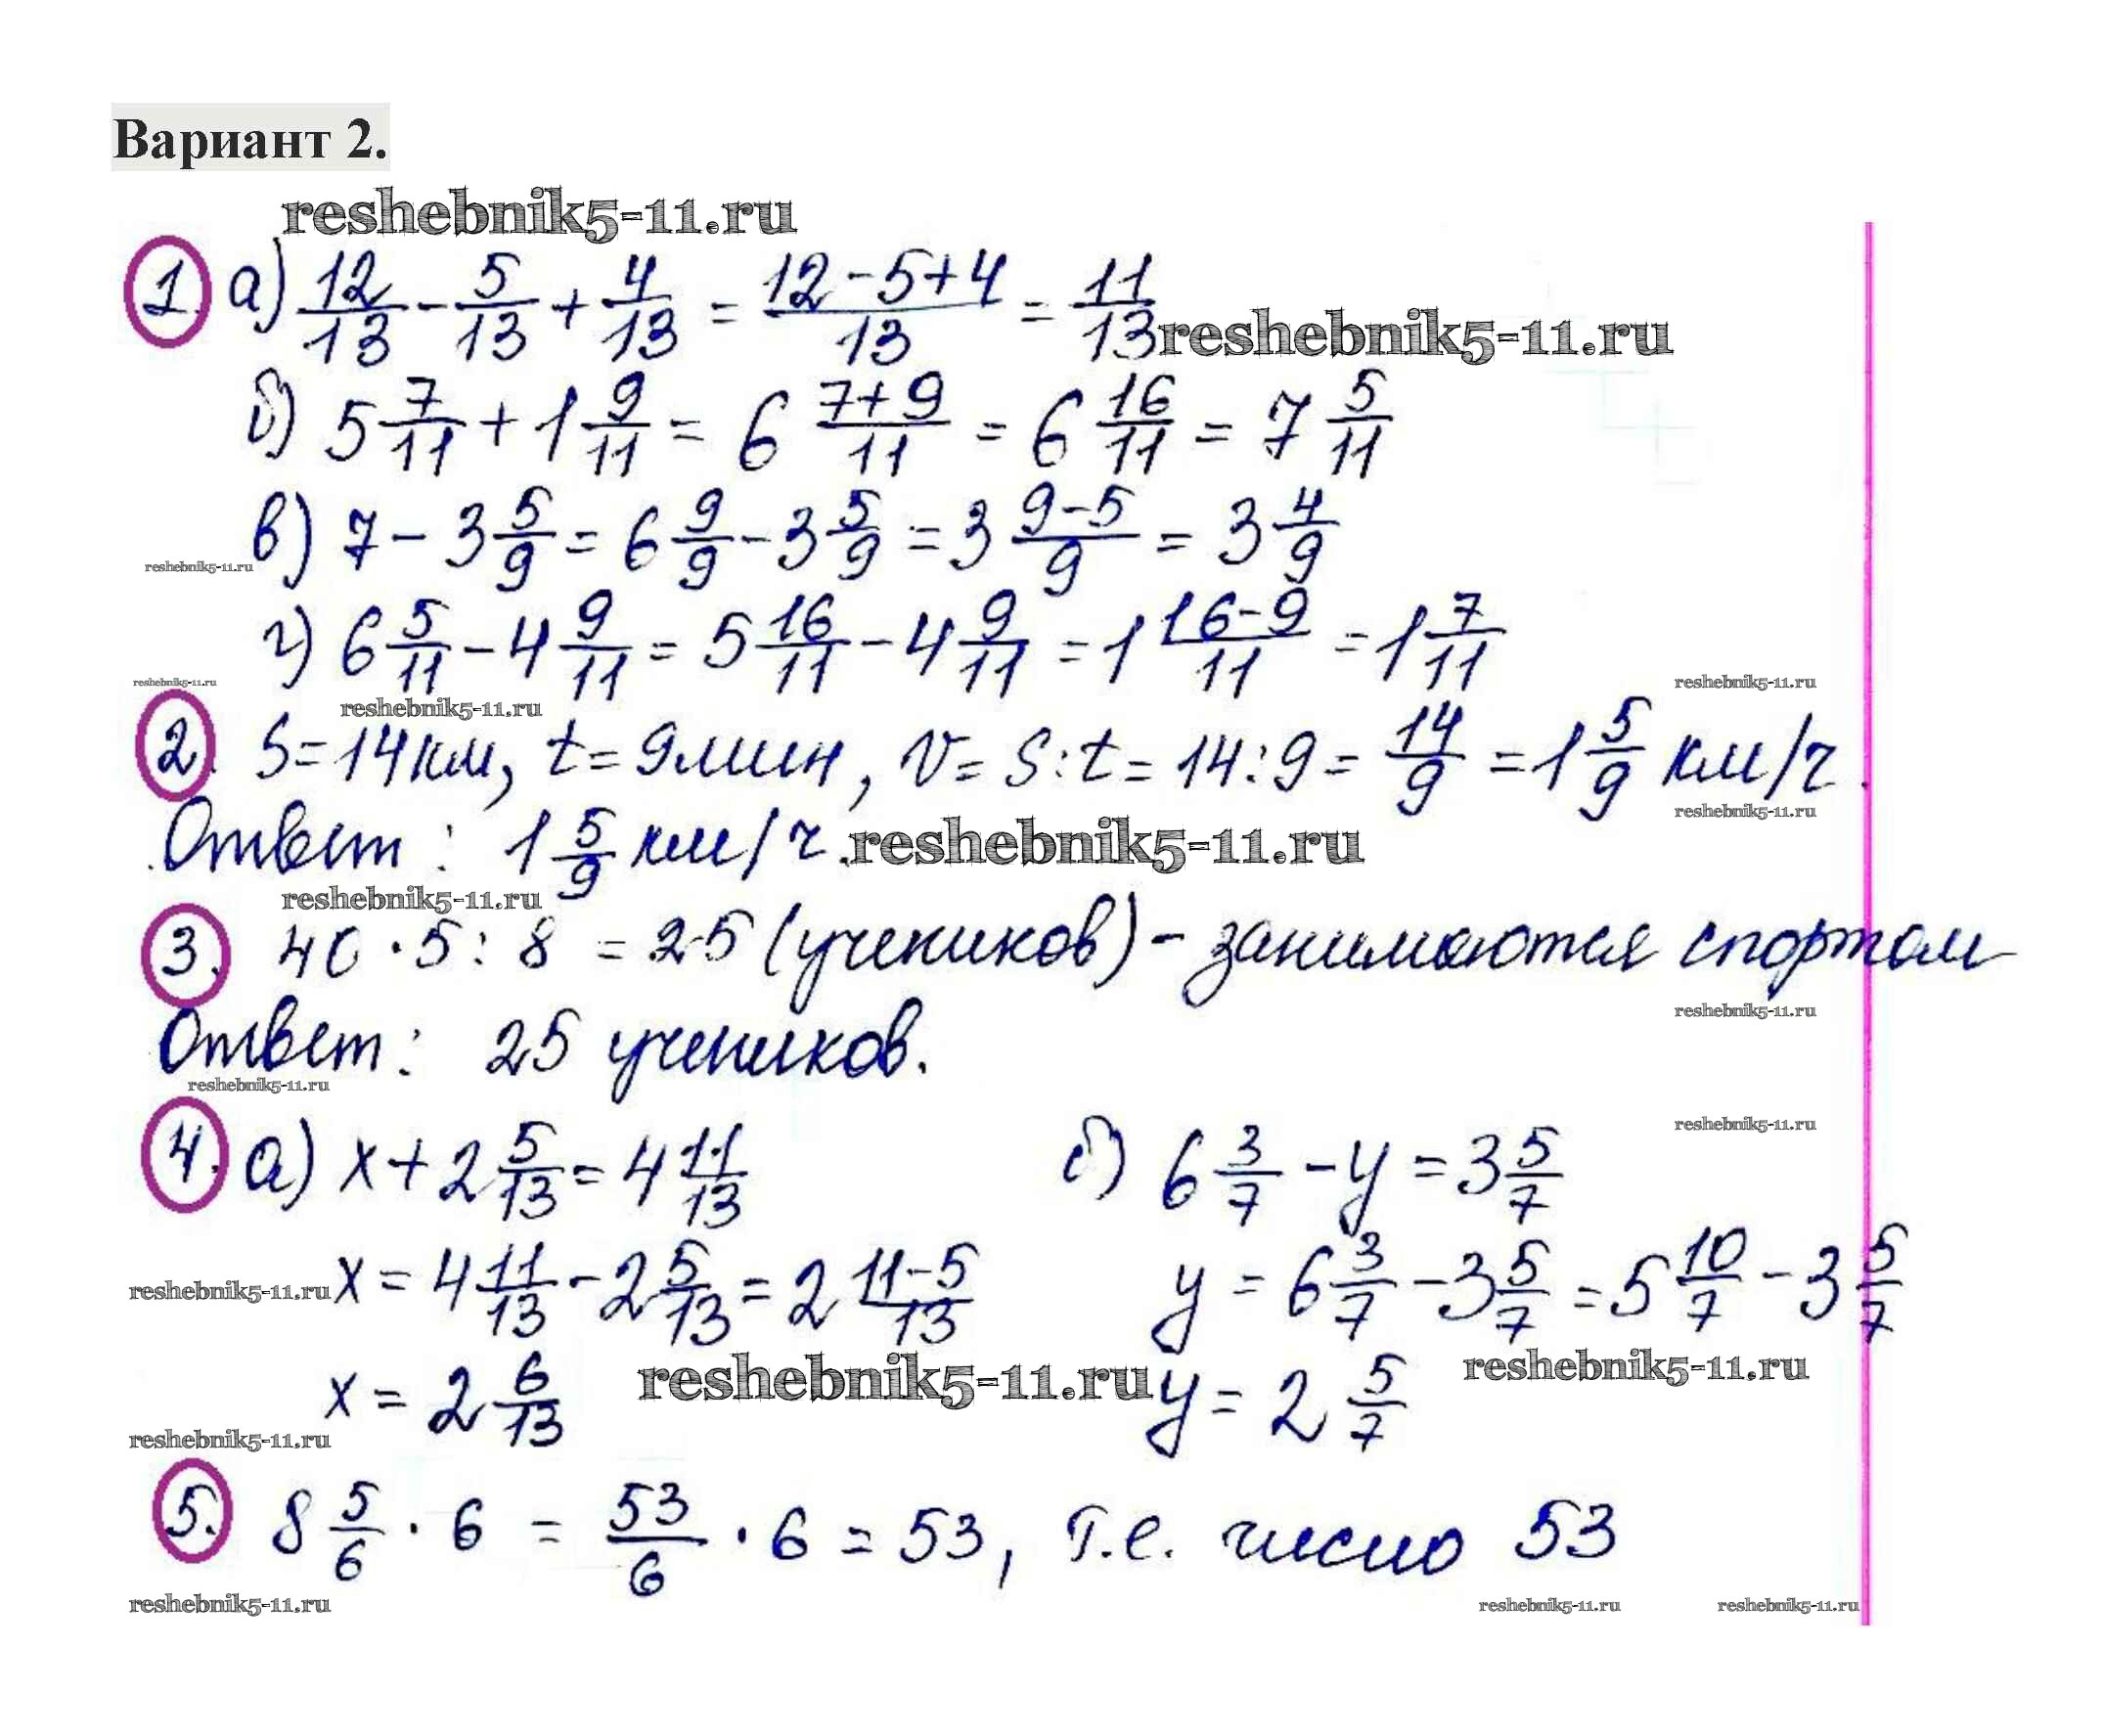 Вариант 2.
reshebnik5-11.ru
1. а) 12/13 - 5/13 + 4/13 = (12-5+4)/13 = 11/13 reshebnik5-11.ru
б) 5 7/11 + 1 9/11 = 6 (7+9)/11 = 6 16/11 = 7 5/11
в) 7 - 3 5/9 = 6 9/9 - 3 5/9 = 3 (9-5)/9 = 3 4/9
reshebnik5-11.ru
г) 6 5/11 - 4 9/11 = 5 16/11 - 4 9/11 = 1 (16-9)/11 = 1 7/11
reshebnik5-11.ru reshebnik5-11.ru reshebnik5-11.ru
2. S=14км, t=9мин, v=S:t=14:9=14/9=1 5/9 км/ч.
reshebnik5-11.ru
Ответ: 1 5/9 км/ч. reshebnik5-11.ru
reshebnik5-11.ru
3. 40·5:8 = 25 (учеников) - занимаются спортом
reshebnik5-11.ru
Ответ: 25 учеников.
reshebnik5-11.ru
reshebnik5-11.ru
4. а) x + 2 5/13 = 4 11/13 б) 6 3/7 - y = 3 5/7
reshebnik5-11.ru x = 4 11/13 - 2 5/13 = 2 (11-5)/13 y = 6 3/7 - 3 5/7 = 5 10/7 - 3 5/7
x = 2 6/13 reshebnik5-11.ru y = 2 5/7 reshebnik5-11.ru
reshebnik5-11.ru
5. 8 5/6 · 6 = 53/6 · 6 = 53, т.е. число 53
reshebnik5-11.ru reshebnik5-11.ru reshebnik5-11.ru